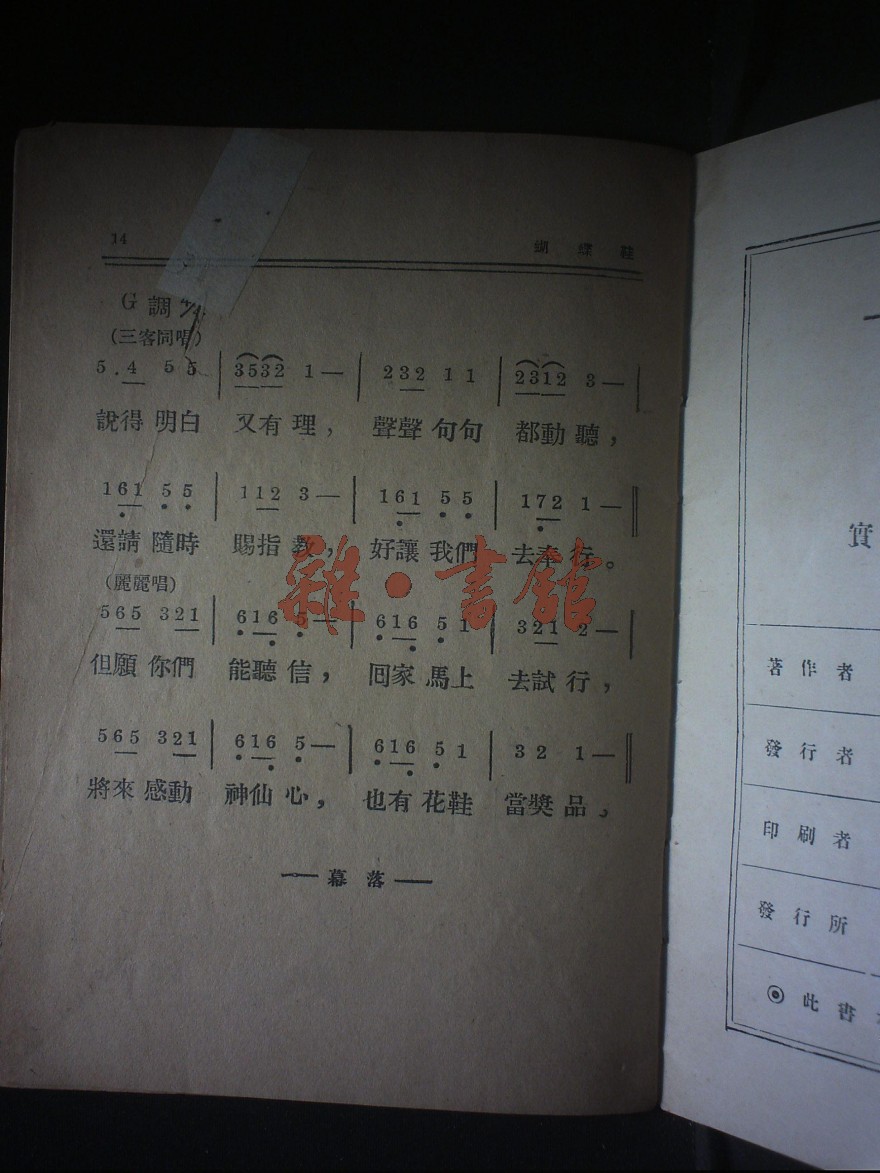 14 蝴蝶鞋
G調 4/4
(三客同唱)
5.4 55 | 3532 1— | 232 11 | 2312 3— |
說得明白 又有理, 聲聲句句 都動聽,
161 55 | 112 3— | 161 55 | 172 1— ‖
還請隨時 賜指教, 好讓我們 去奉行。
(麗麗唱)
565 321 | 616 5— | 616 51 | 321 2— |
但願你們 能聽信, 囘家馬上 去試行,
565 321 | 616 5— | 616 51 | 32 1— ‖
將來感動 神仙心, 也有花鞋 當獎品,
—幕落—
雜·書館
實
著作者
發行者
印刷者
發行所
◉此書